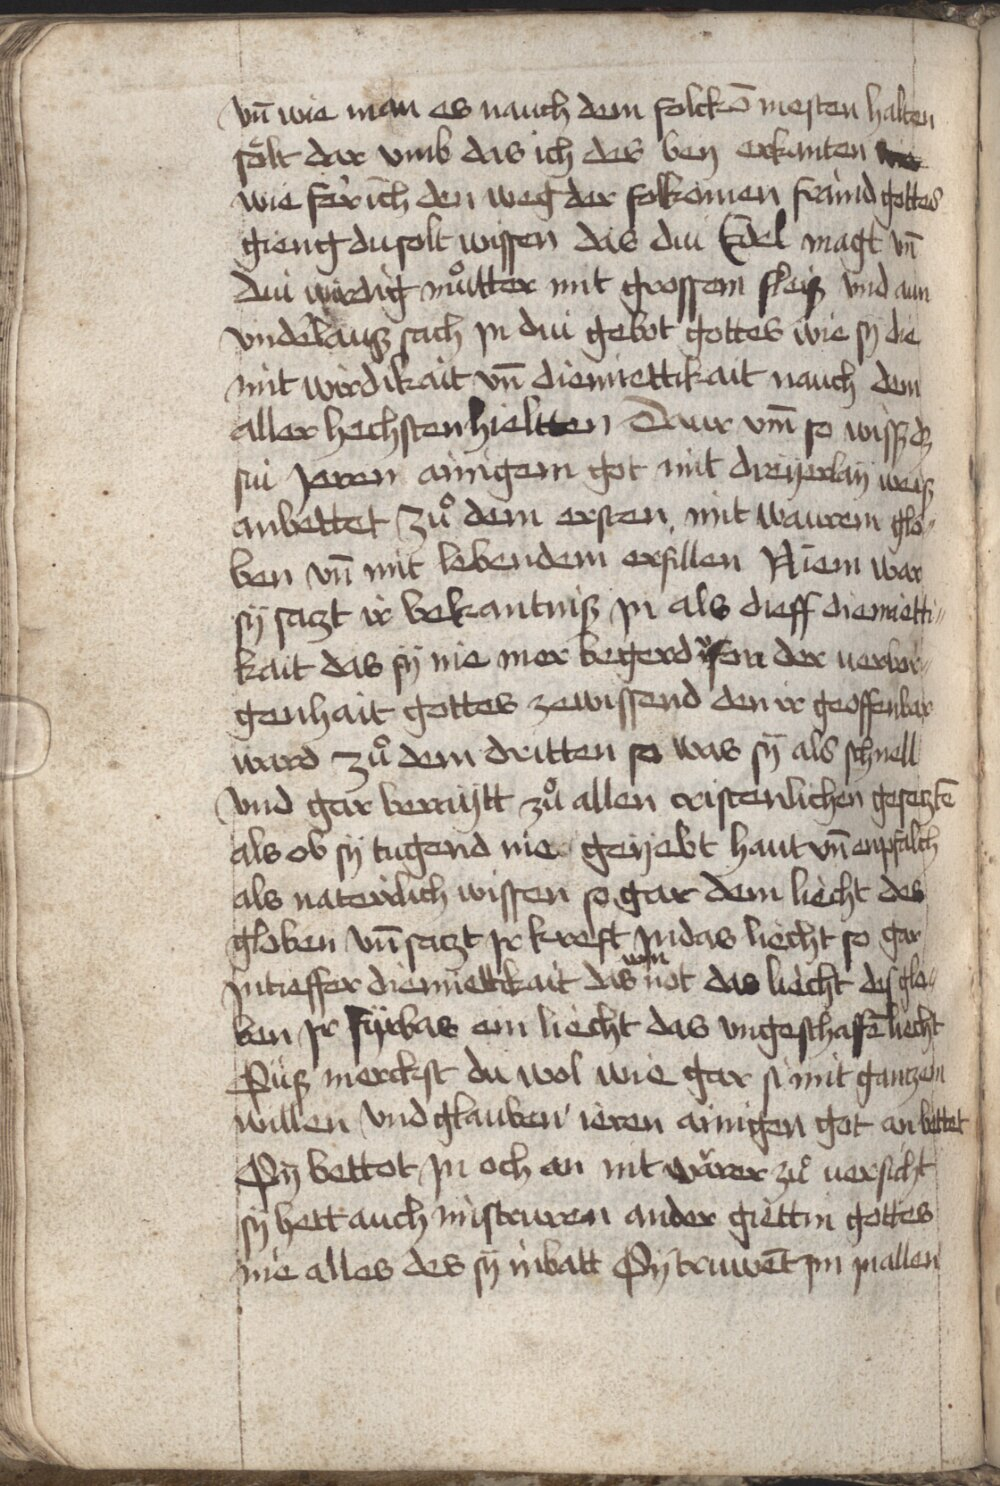 vn̄ wie man es nauch dem folckō mesten halten
sölt dar vmb das ich des bey erkanten
wie fer ich den weg der folkomen fraind gottes
gieng du solt wissen das diu Edel magt vn̄
diu wirdig muͦtter mit grossem fleiß vnd aun
vnderlauß sach jn diu gebot gottes wie sÿ die
mit wirdikait vn̄ diemiettikait nauch dem
aller hechsten hieltten Daur vm̄ so wiss dz
sui Jeren ainigem got mit dreÿerlaÿ weiß
anbettet Zuͦ dem ersten mit waurem glo-
ben vn̄ mit lebendem erfillen Niem war
sÿ satzt ir bekantniß jn als dieff diemietti-
kait das sÿ nie mer begerd der verbor-
genhait gottes zewissend den ir geoffenbar
ward zuͦ dem dritten so was sÿ als schnell
vnd gar beraÿtt zuͦ allen cristenlichen gesetztē
als ob sÿ tugend nie geÿebt haut vn̄ enpfalch
als naterlich wissen so gar dem liecht des
globen vn̄ satzt jr kreft jn das liecht so gar
jn tieffer diemiettikait das not das liecht des glo-
ben jr fÿrbas ein liecht das vngeschafē liecht
Suß merckst du wol wie gar si mit gantzem
willen vnd glauben ieren ainigen got an bettet
Sÿ bettot jn och an mit wärer zuͦ uersicht
sÿ hett auch mistruren an der giettin gottes
nie alles des sÿ in batt Sÿ truwēt im jn allen